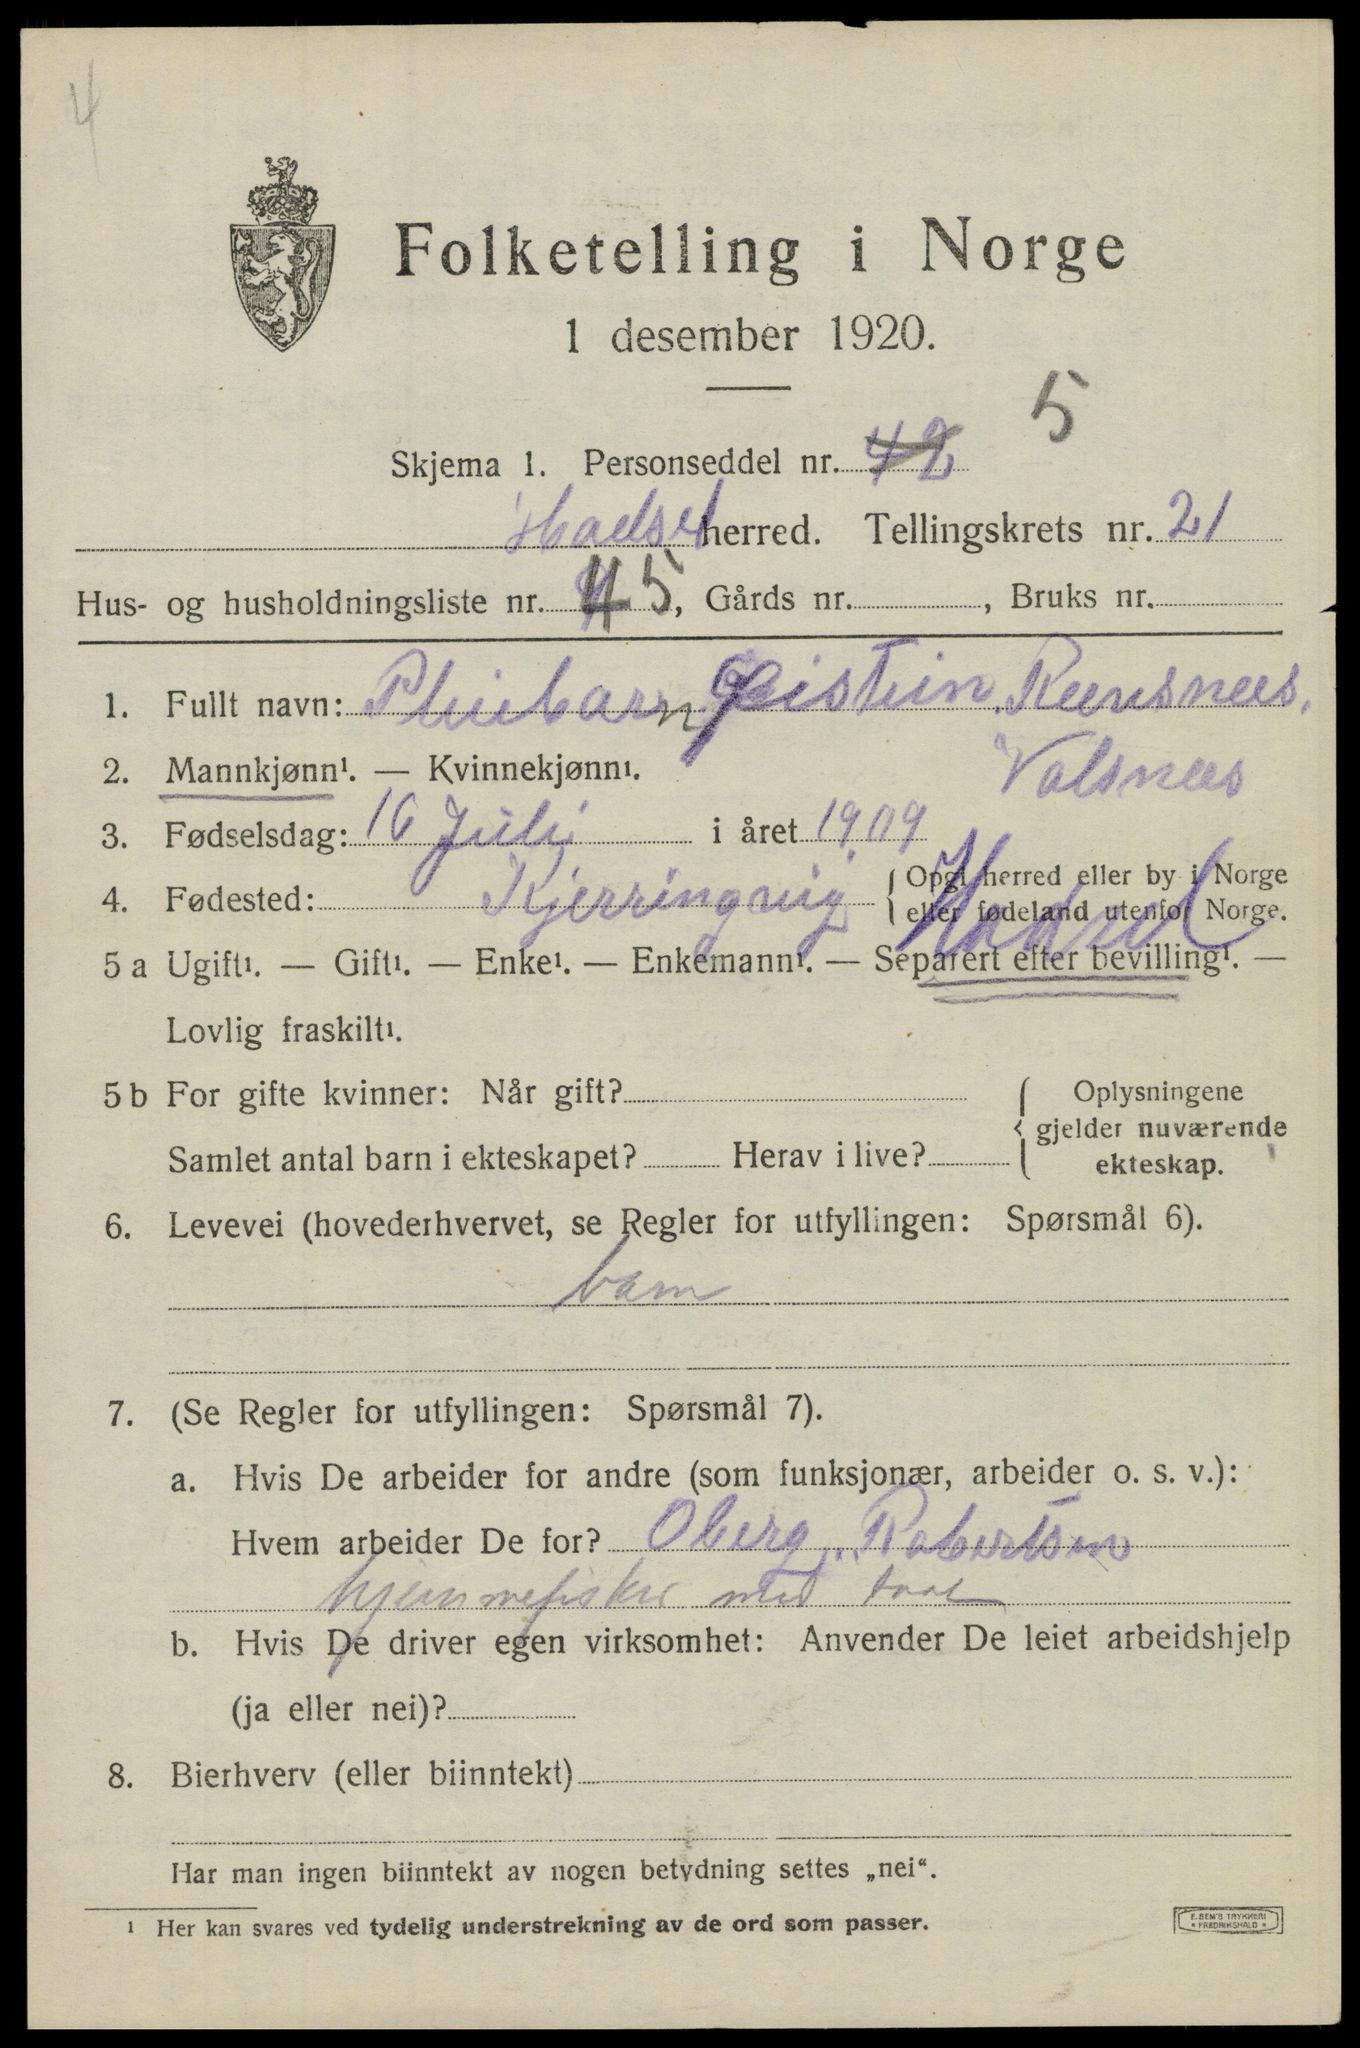 4
Folketelling i Norge
1 desember 1920.
5
Skjema 1. Personseddel nr. 42
Hadsel herred. Tellingskrets nr. 21
Hus- og husholdningsliste nr. 5, Gårds nr. , Bruks nr.
1. Fullt navn: Pleiebarn Eistein Reeusnees.
Valsnees
2. Mannkjønn¹. — Kvinnekjønn¹.
3. Fødselsdag: 16 Juli i året 1909
4. Fødested: Kjerringvig { Opgi herred eller by i Norge
eller fødeland utenfor Norge.
Hadsel
5 a Ugift¹. — Gift¹. — Enke¹. — Enkemann¹. — Separert efter bevilling¹. —
Lovlig fraskilt¹.
5 b For gifte kvinner: Når gift?
Samlet antal barn i ekteskapet? Herav i live?
{ Oplysningene
gjelder nuværende
ekteskap.
6. Levevei (hovederhvervet, se Regler for utfyllingen: Spørsmål 6).
barn
7. (Se Regler for utfyllingen: Spørsmål 7).
a. Hvis De arbeider for andre (som funksjonær, arbeider o. s. v.):
Hvem arbeider De for? Oberg. Robertsen
hjemmefisker med
b. Hvis De driver egen virksomhet: Anvender De leiet arbeidshjelp
(ja eller nei)?
8. Bierhverv (eller biinntekt)
Har man ingen biinntekt av nogen betydning settes „nei“.
¹ Her kan svares ved tydelig understrekning av de ord som passer.
E. SEM'S TRYKKERI
* FREDRIKSHALD *